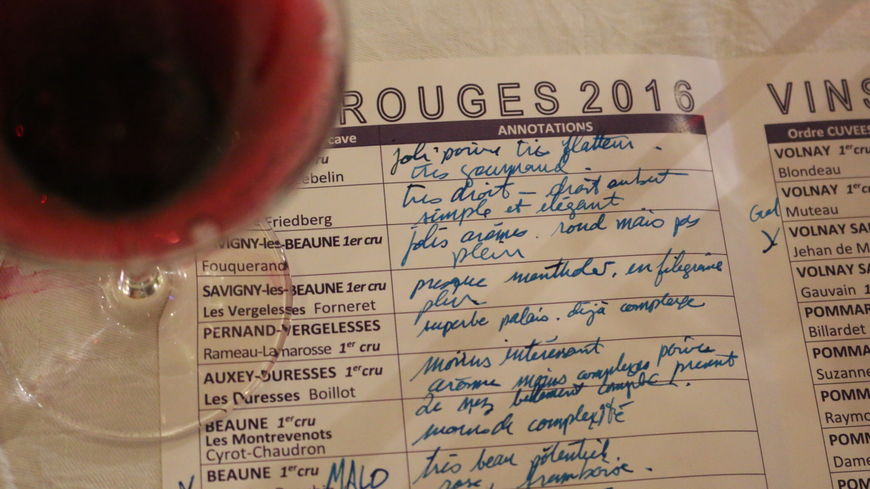 ROUGES 2016
cave ANNOTATIONS
joli poivre très flatteur.
très gourmand.
ebelin
très droit -
simple et élégant
Friedberg
SAVIGNY-les-BEAUNE 1er cru
Fouquerand
jolis arômes. rond mais pas
plein
SAVIGNY-les-BEAUNE 1er cru
Les Vergelesses Forneret
presque mentholé, en filigrane
PERNAND-VERGELESSES
Rameau-Lamarosse 1er cru
superbe palais. déjà complexe
AUXEY-DURESSES 1er cru
Les Duresses Boillot
moins intéressant
arôme moins complexe poivre
BEAUNE 1er cru
Les Montrevenots
Cyrot-Chaudron
Le nez
moins de complexité
BEAUNE 1er cru MALO
très beau potentiel
rose, framboise.
VINS
Ordre CUVEES
VOLNAY 1er cru
Blondeau
VOLNAY 1er
Muteau
VOLNAY SA
Jehan de M
VOLNAY SA
Gauvain 1
POMMAR
Billardet
POMMA
Suzanne
POMM
Raymo
POMM
Dame
POM